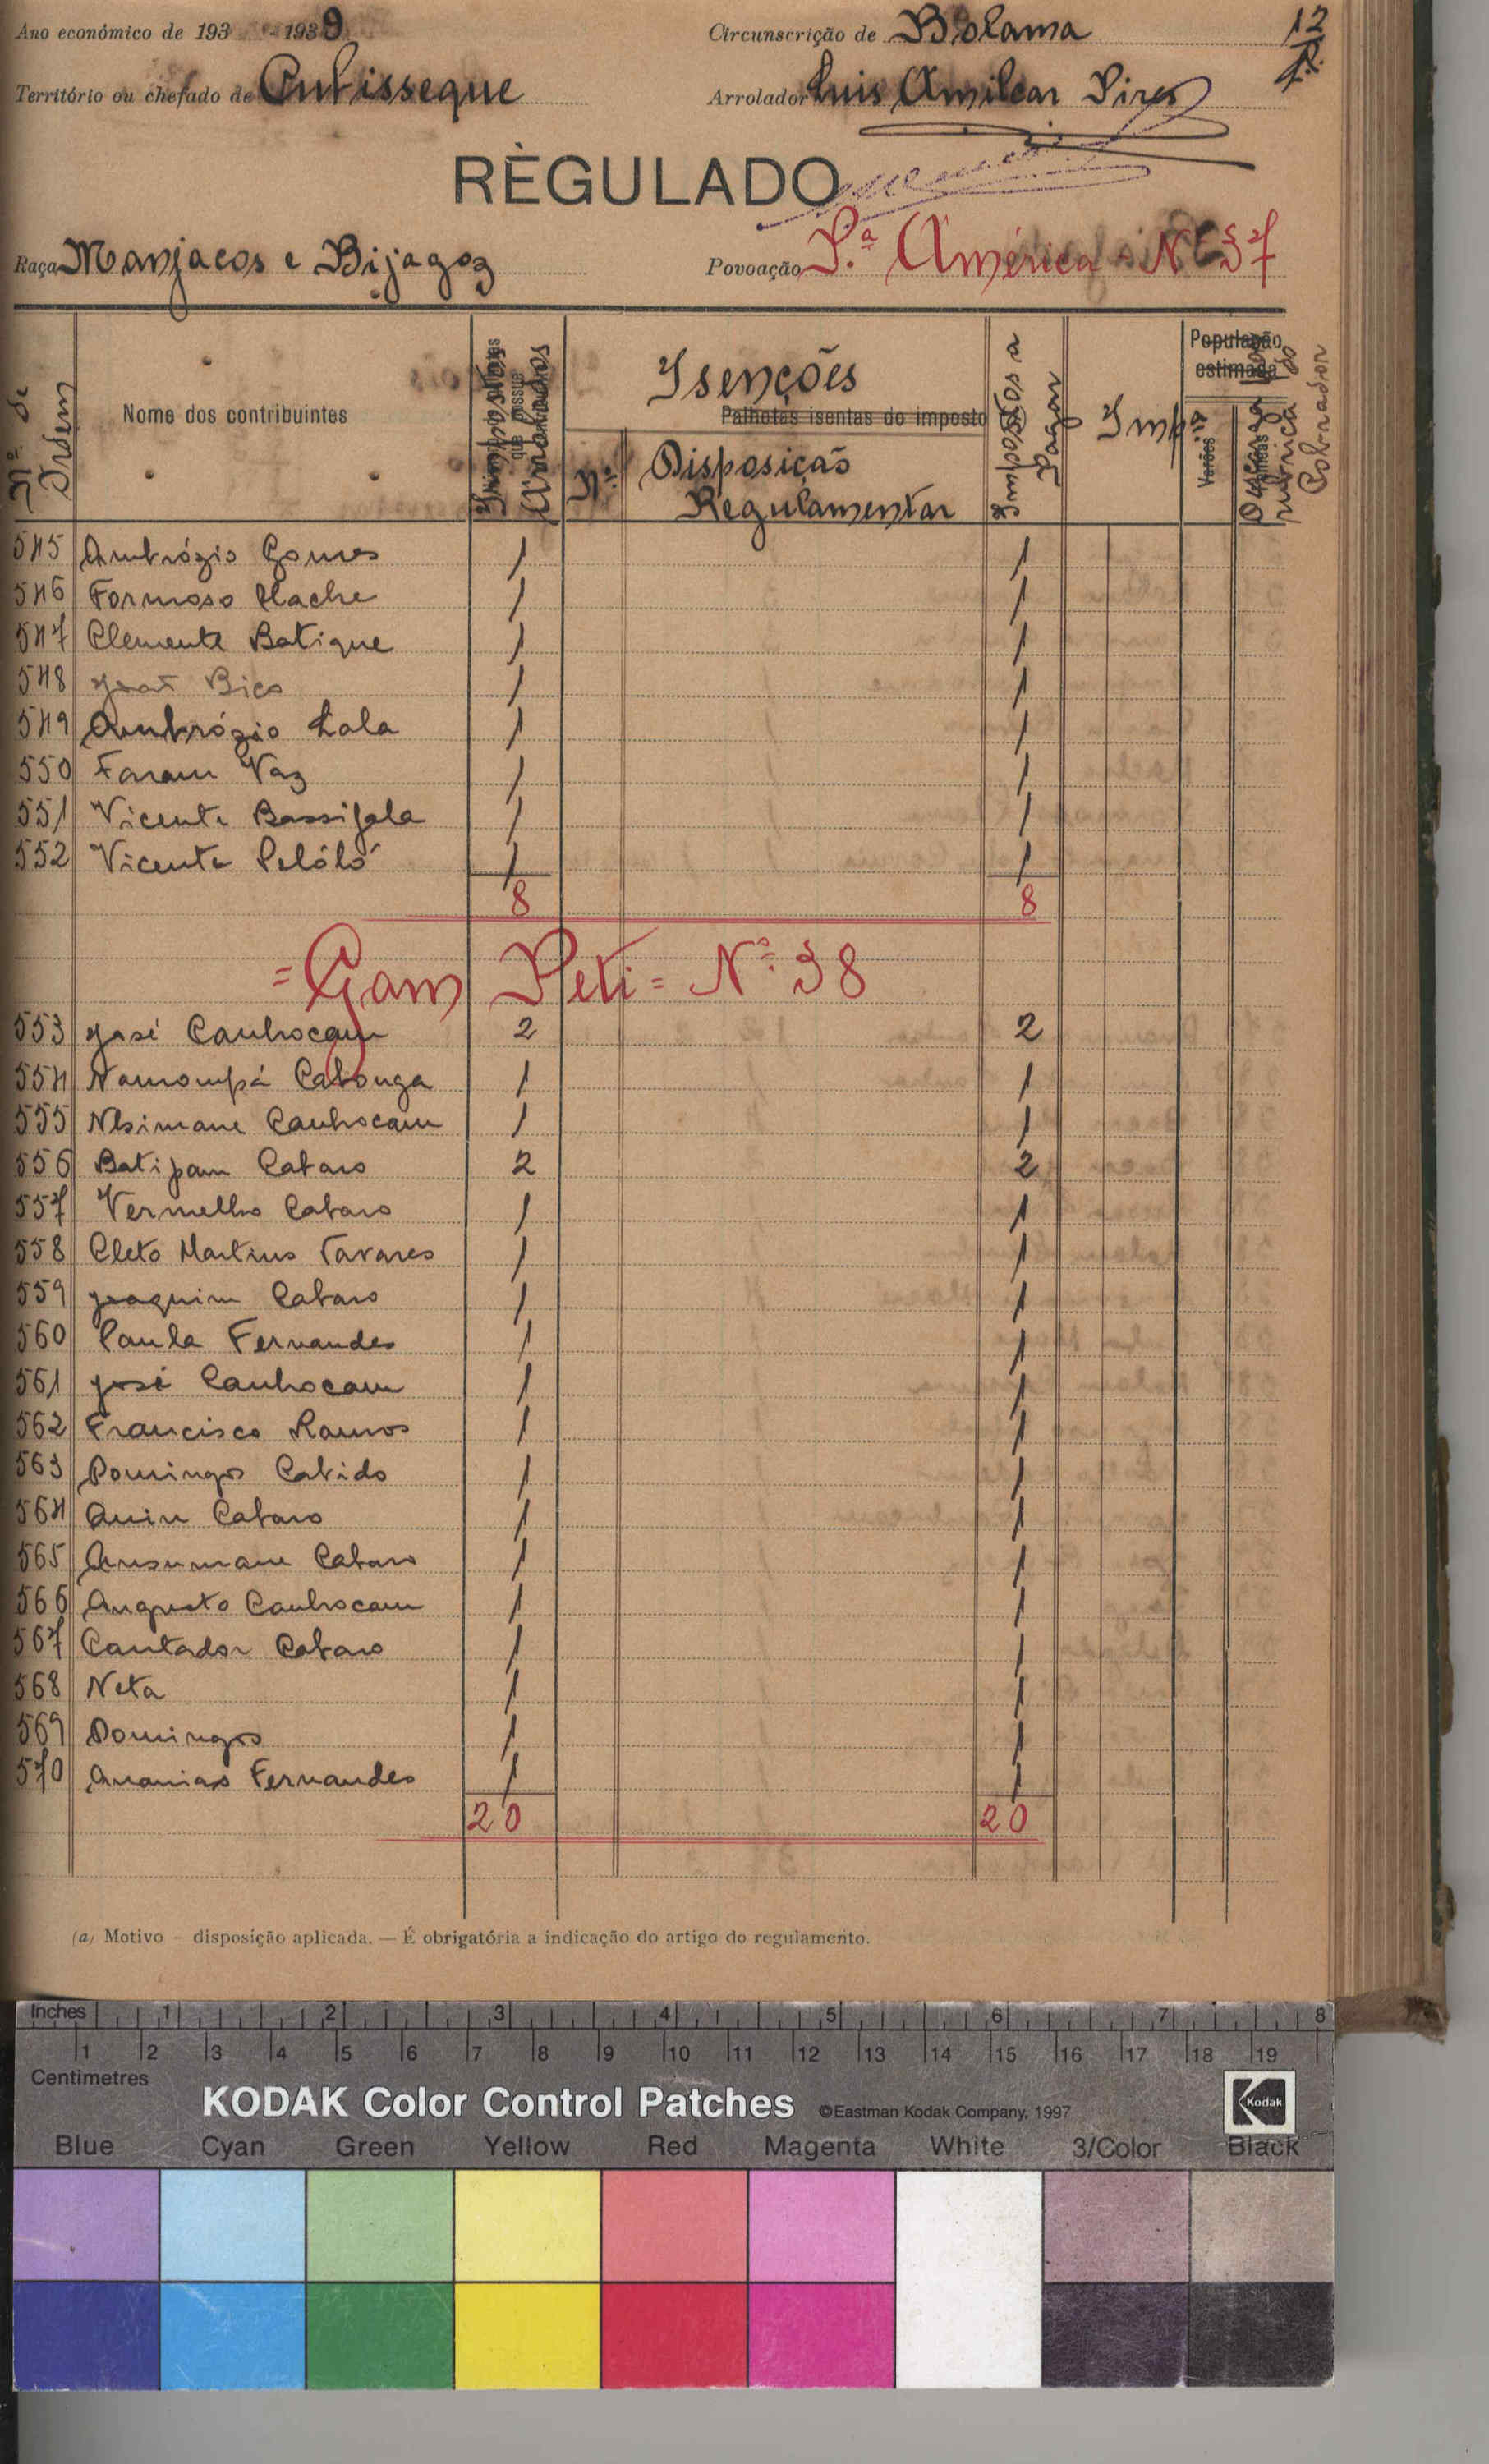 Ano económico de 193 -1939
Circunscrição de Bolama
12
Território ou chefado de
Arrolador Luis Amilcar Pires
RÈGULADO
Raça Manjacos e Bijagoz
Povoação P.ª América N.º 37
Nº de Ordem
Nome dos contribuintes
Impostos Arrolados
Isenções
Palhotas isentas do imposto
Nº
Disposição
Regulamentar
Impostos a Pagar
Imp.
População
estimada
Varões
rubrica do Cobrador
545 Ambrózio Gomes 1 1
546 Formoso Hache 1 1
547 Clemente Batique 1 1
548 José Bico 1 1
549 Ambrózio Lala 1 1
550 Faram Vaz 1 1
551 Vicente Bassifala 1 1
552 Vicente Peláló 1 1
8 8
= Gam Peti = Nº 38
553 José Canhocam 2 2
554 Namompá Cabonga 1 1
555 Nhsimane Canhocam 1 1
556 Batipam Cabaro 2 2
557 Vermelho Cabaro 1 1
558 Cleto Martins Tavares 1 1
559 Joaquim Cabaro 1 1
560 Paula Fernandes 1 1
561 José Canhocam 1 1
562 Francisco Ramos 1 1
563 Domingos Cabido 1 1
564 Quin Cabaro 1 1
565 Ansumane Cabaro 1 1
566 Augusto Canhocam 1 1
567 Cantador Cabaro 1 1
568 Neta 1 1
569 Domingos 1 1
570 Ananias Fernandes 1 1
20 20
(a) Motivo - disposição aplicada. — É obrigatória a indicação do artigo do regulamento.
Inches 1 2 3 4 5 6 7 8
1 2 3 4 5 6 7 8 9 10 11 12 13 14 15 16 17 18 19
Centimetres
KODAK Color Control Patches ©Eastman Kodak Company, 1997
Kodak
Blue Cyan Green Yellow Red Magenta White 3/Color Black